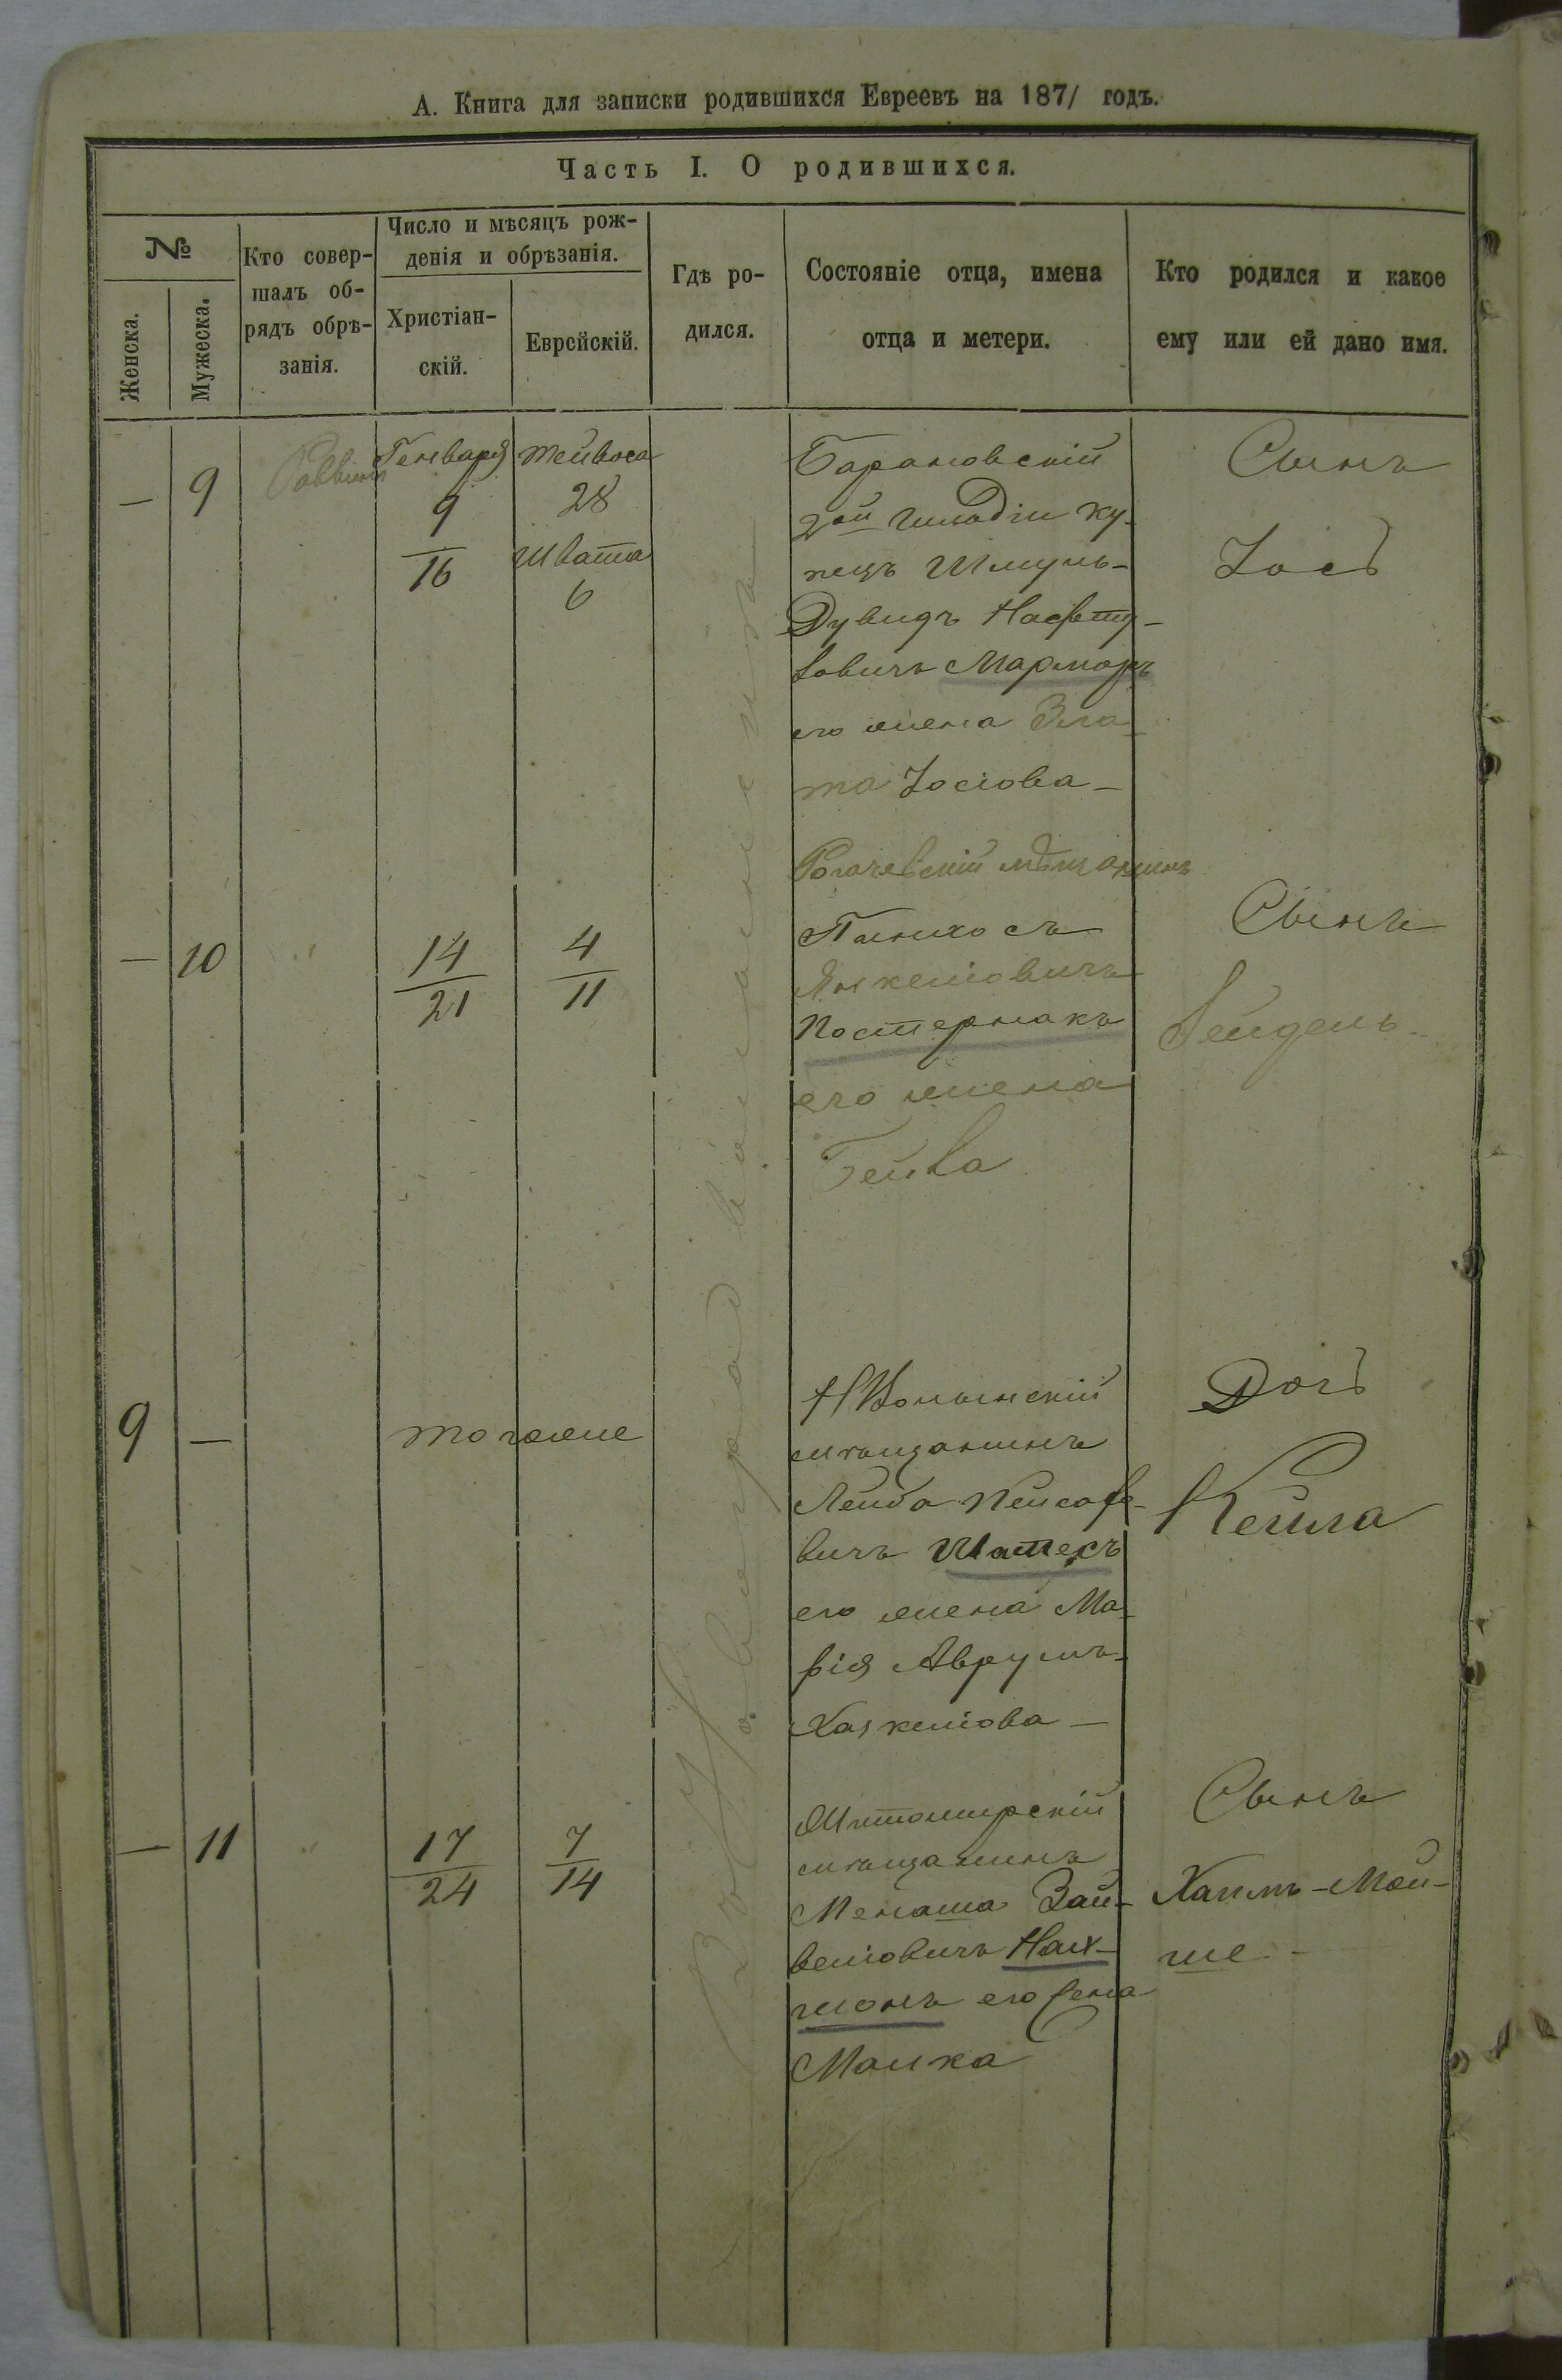 А. Книга для записки родившихся Евреевъ на 1871 годъ.
Часть I. О родившихся.
№
Женска.
Мужеска.
Кто совер-
шалъ об-
рядъ обрѣ-
занія.
Число и мѣсяцъ рож-
денія и обрѣзанія.
Христіан-
скій.
Еврейскій.
Гдѣ ро-
дился.
Состояніе отца, имена
отца и метери.
Кто родился и какое
ему или ей дано имя.
— 9
Раввинъ
Генваря
9
16
Тейвоса
28
Швата
6
Барановскій
2ой гильдіи ку-
пецъ Шмуль-
Дувидъ
вовичъ Марморъ
его жена Зла-
та Іосіова —
Сынъ
Іосъ
— 10
14
21
4
11
Рогачевскій мѣщанинъ
Пинхосъ
Янкеліовичъ
Постернакъ
его жена
Гейва
Сынъ
Зейдель
9 —
тогоже
НВолынскій
мѣщанинъ
Лейба Пейсахо-
вичъ Шатехъ
его жена Ма-
рія Аврумъ-
Хаскеліова —
Дочъ
Кейла
— 11
17
24
7
14
Житомирскій
мѣщанинъ
Менаша Зай-
веліовичъ Нах-
шонъ его жена
Малка
Сынъ
Хаимъ-Мой-
ше